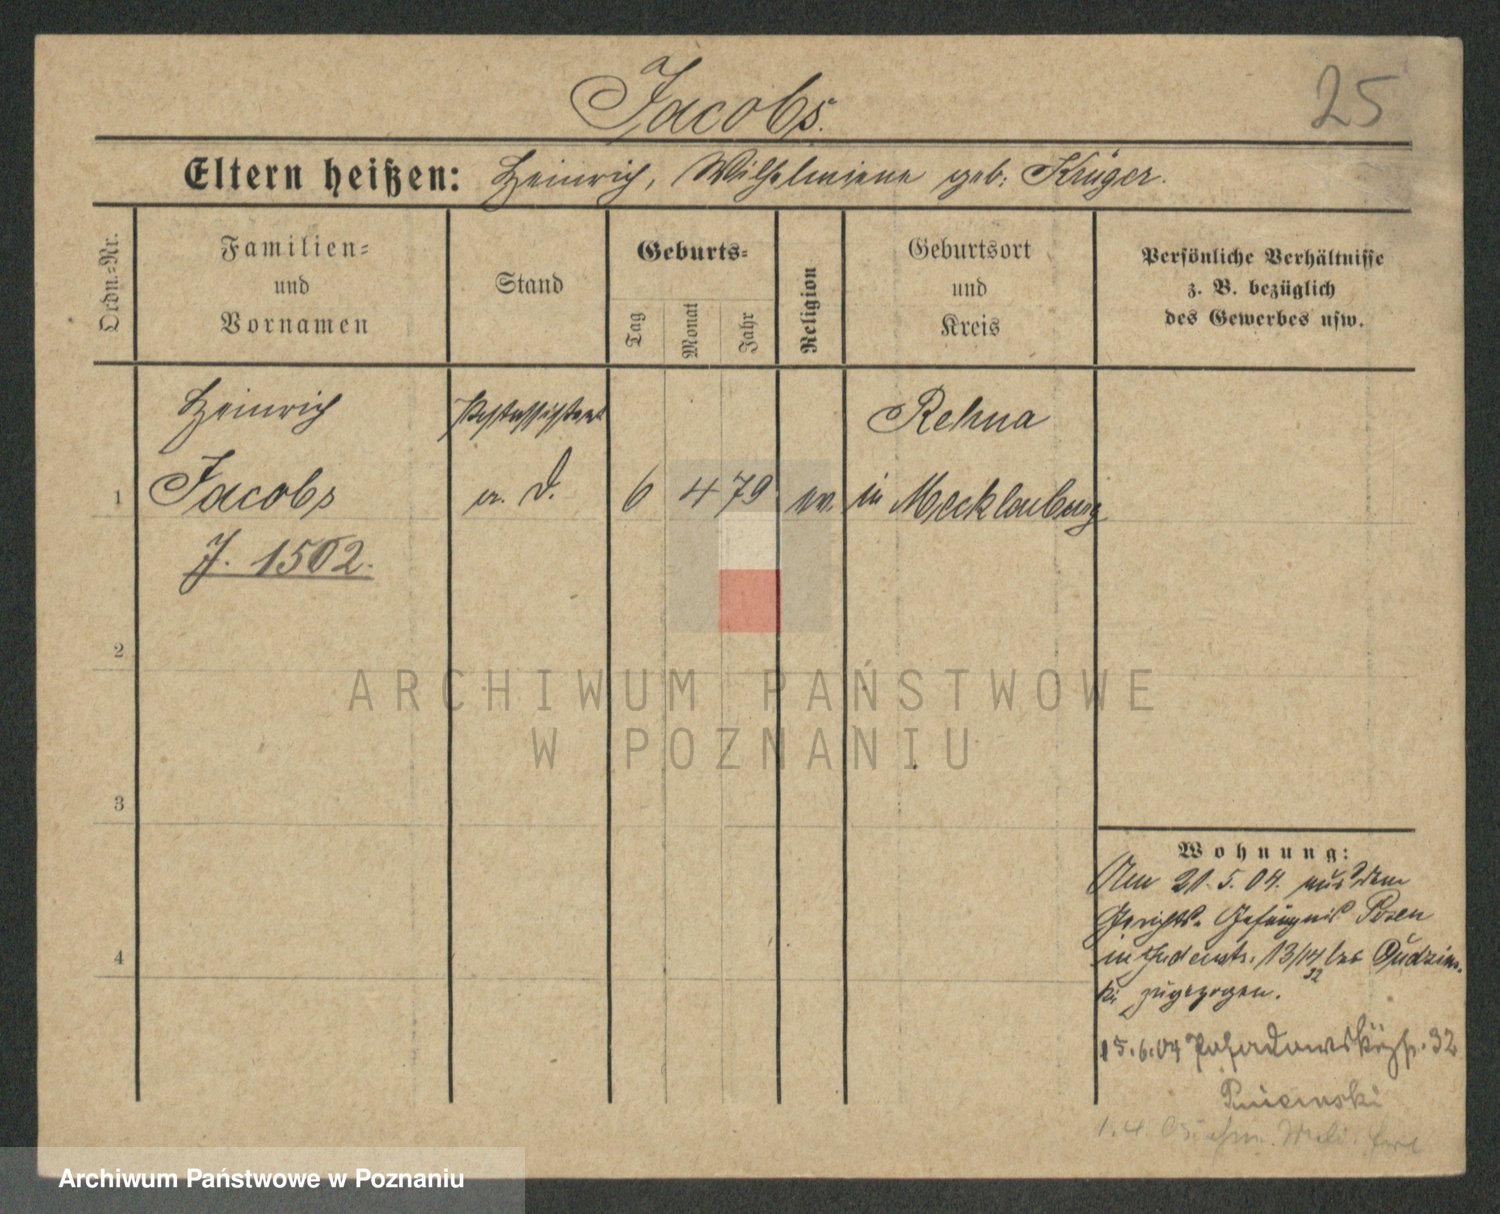 Jacobs.
25
Eltern heißen: Heinrich, Wilhelmiene geb. Krüger.
Ordn.-Nr.
Familien-
und
Vornamen
Stand
Geburts-
Tag
Monat
Jahr
Religion
Geburtsort
und
Kreis
Persönliche Verhältnisse
z. B. bezüglich
des Gewerbes usw.
Heinrich Postassistent Rehna
1 Jacobs a. D. 6 4 79 ev. in Mecklenburg
J. 1502.
2
ARCHIWUM PAŃSTWOWE
W POZNANIU
3
Wohnung:
Am 21. 5. 04. aus dem
Gerichts-Gefängnis Posen
13/14 bei Dudzins-
ki zugezogen.
32
15.6.04 32
Pniewski
4
1.4.
Archiwum Państwowe w Poznaniu